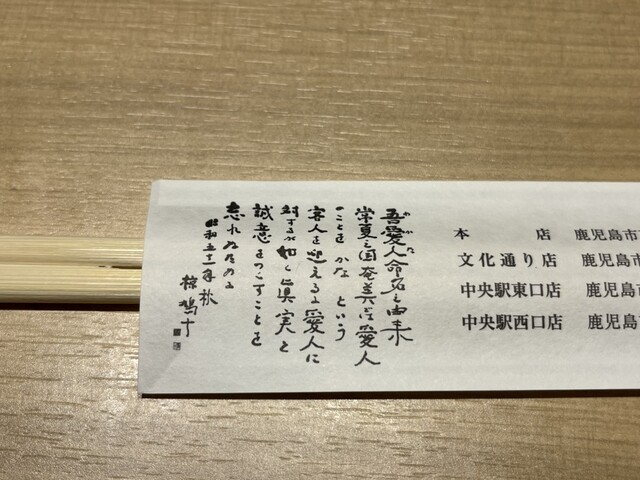 吾愛人命名之由来
わかな
常夏之国奄美は愛人
のことをかなという
客人を迎えるに愛人に
対するが如く真実と
誠意をつくすことを
忘れぬためのよ
昭和五十一年秋
椋鳩十
本店 鹿児島市
文化通り店 鹿児島市
中央駅東口店 鹿児島市
中央駅西口店 鹿児島市